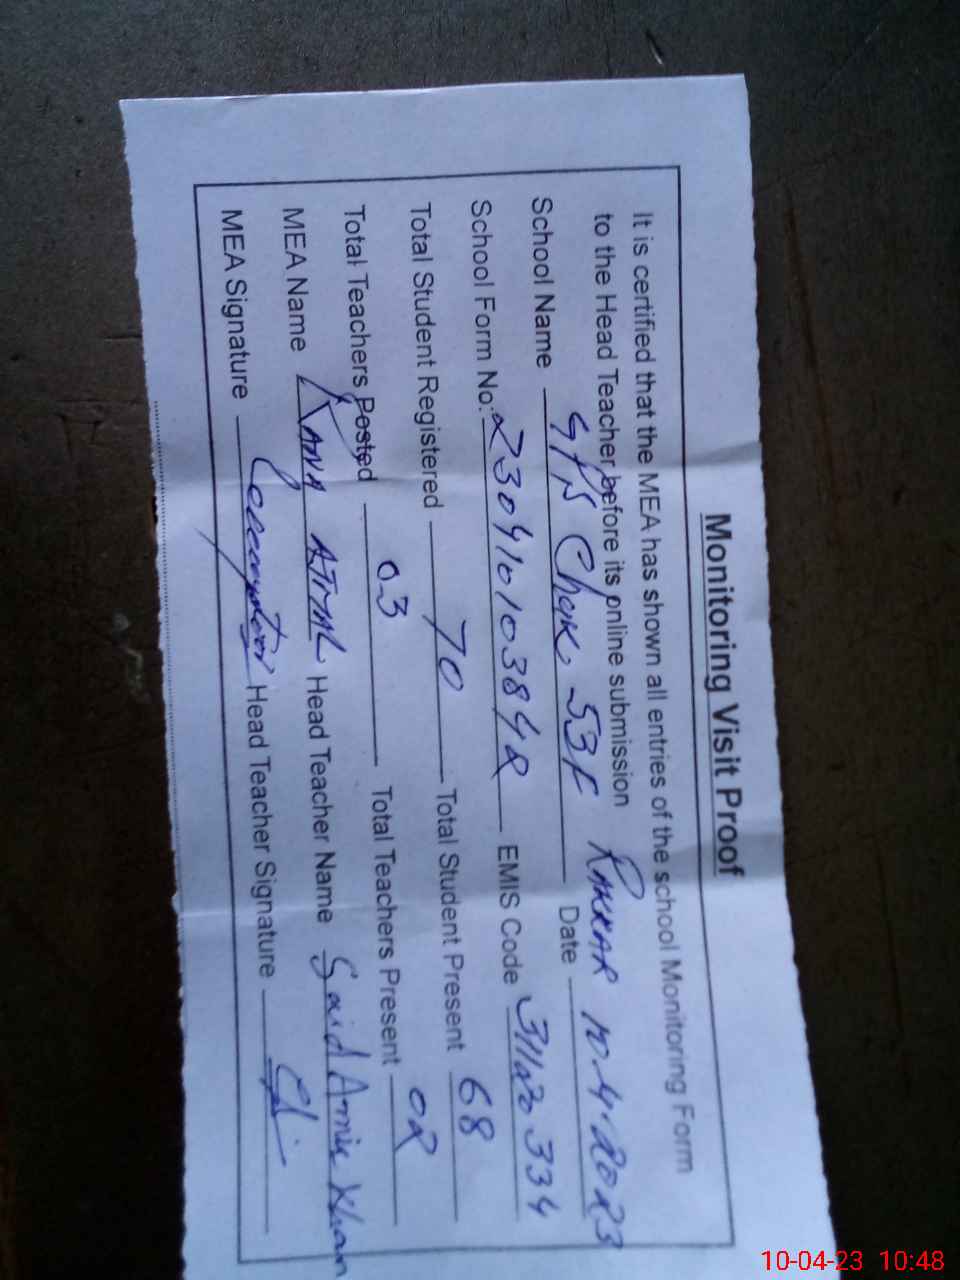 Monitoring Visit Proof
It is certified that the MEA has shown all entries of the school Monitoring Form
to the Head Teacher before its online submission
School Name GPS Chak 53F Date 10-4-2023
School Form No: 2304101038482 EMIS Code 31120334
Total Student Registered 70 Total Student Present 68
Total Teachers Posted 03 Total Teachers Present 02
MEA Name RANA AJMAL Head Teacher Name Said Amir Khan
MEA Signature Head Teacher Signature
10-04-23 10:48